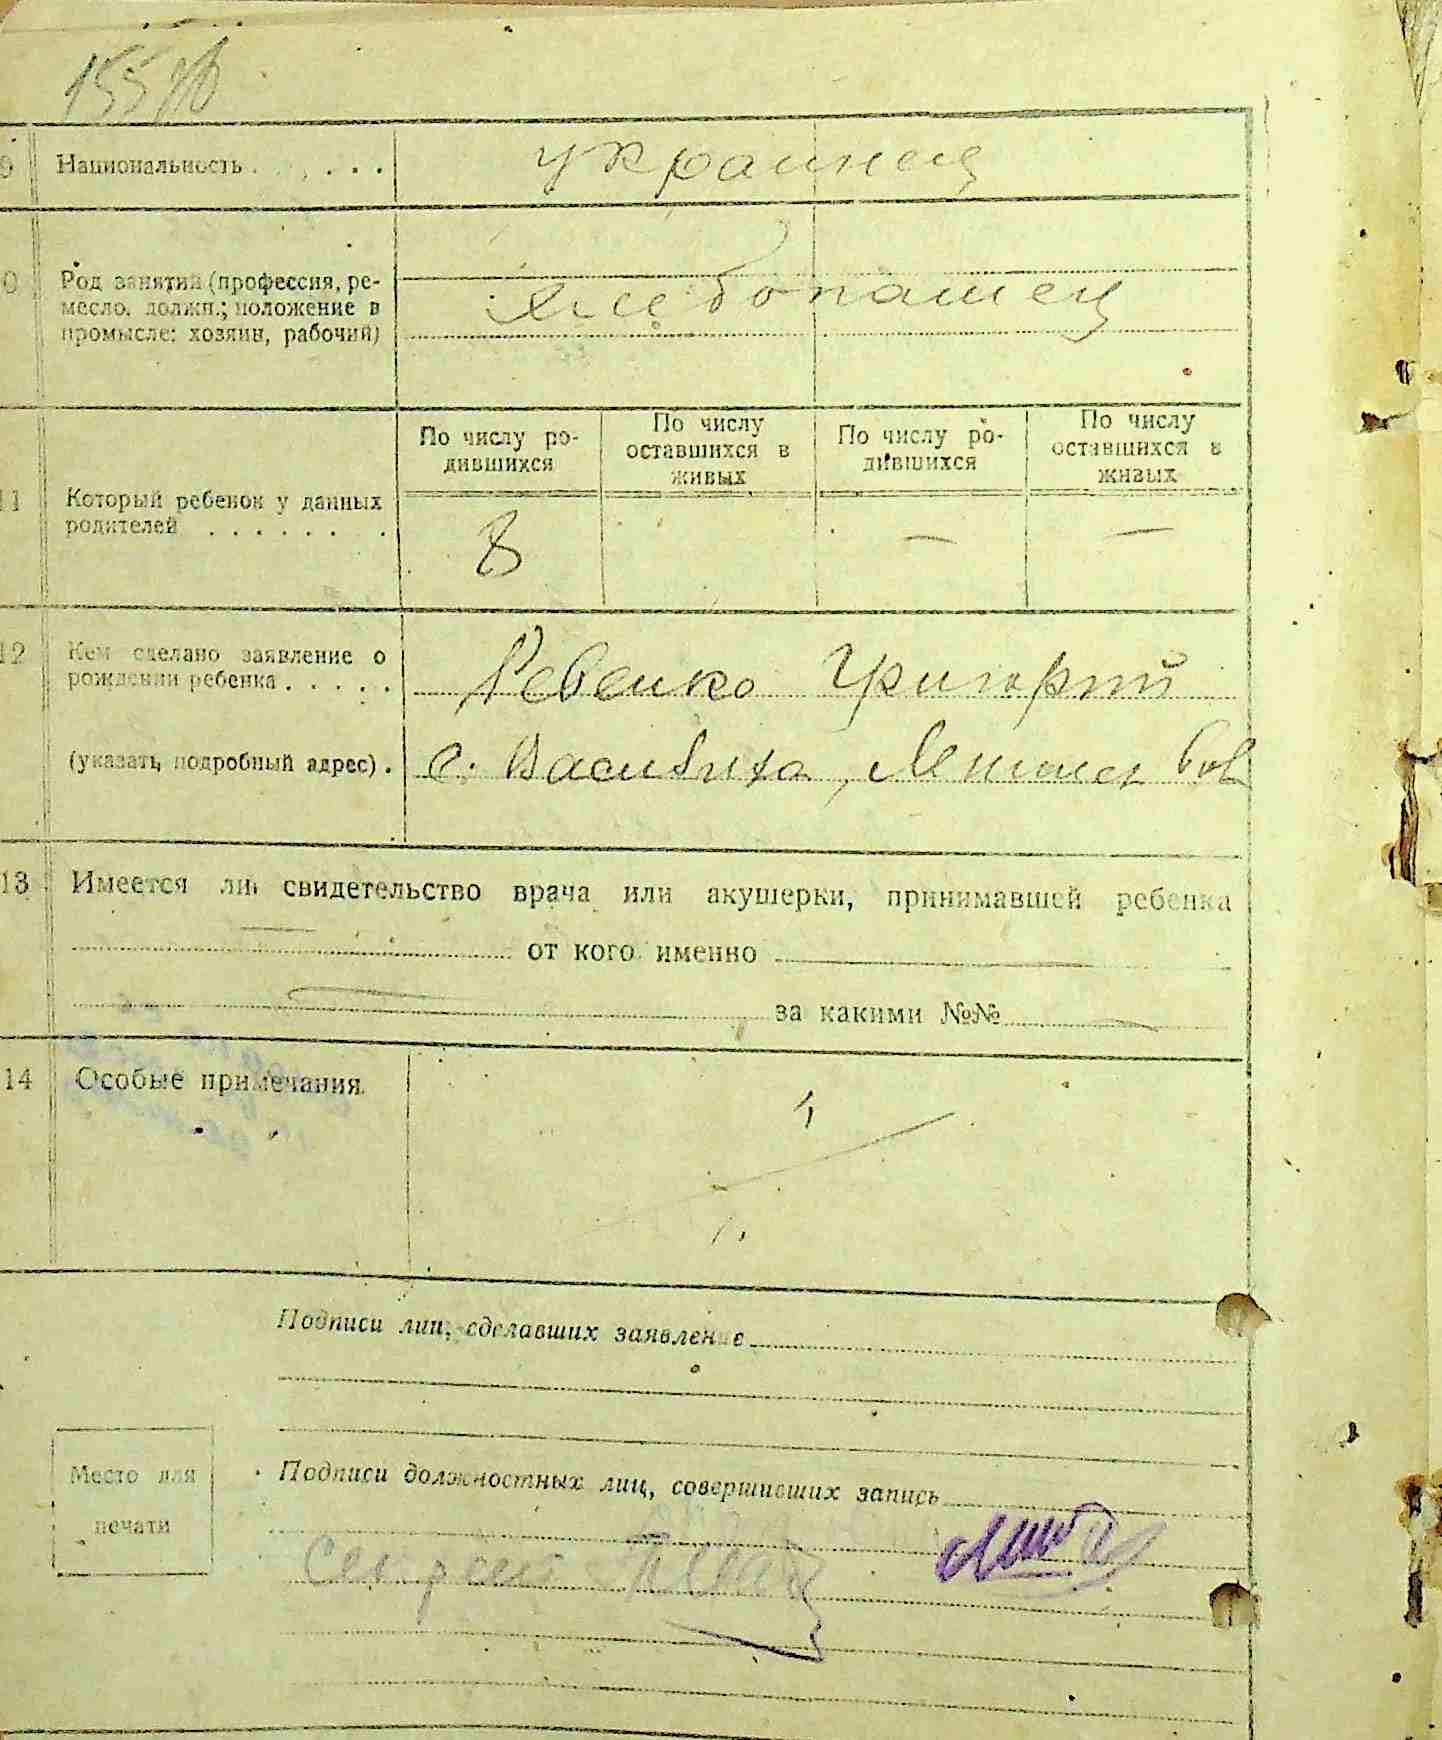 9 Национальность . . . . . . украинец
10 Род занятий (профессия, ре-
месло, должн.; положение в
промысле: хозяин, рабочий)
хлебопашец
По числу ро-
дившихся
По числу
оставшихся в
живых
По числу ро-
дившихся
По числу
оставшихся в
живых
11 Который ребенок у данных
родителей . . . . . . .
8 — —
12 Кем сделано заявление о
рождении ребенка . . . . .
Ревенко Григорий
(указать подробный адрес) . с.
13 Имеется ли свидетельство врача или акушерки, принимавшей ребенка
— от кого именно —
— за какими №№ —
14 Особые примечания
Подписи лиц, сделавших заявление
Подписи должностных лиц, совершивших запись
Место для
печати